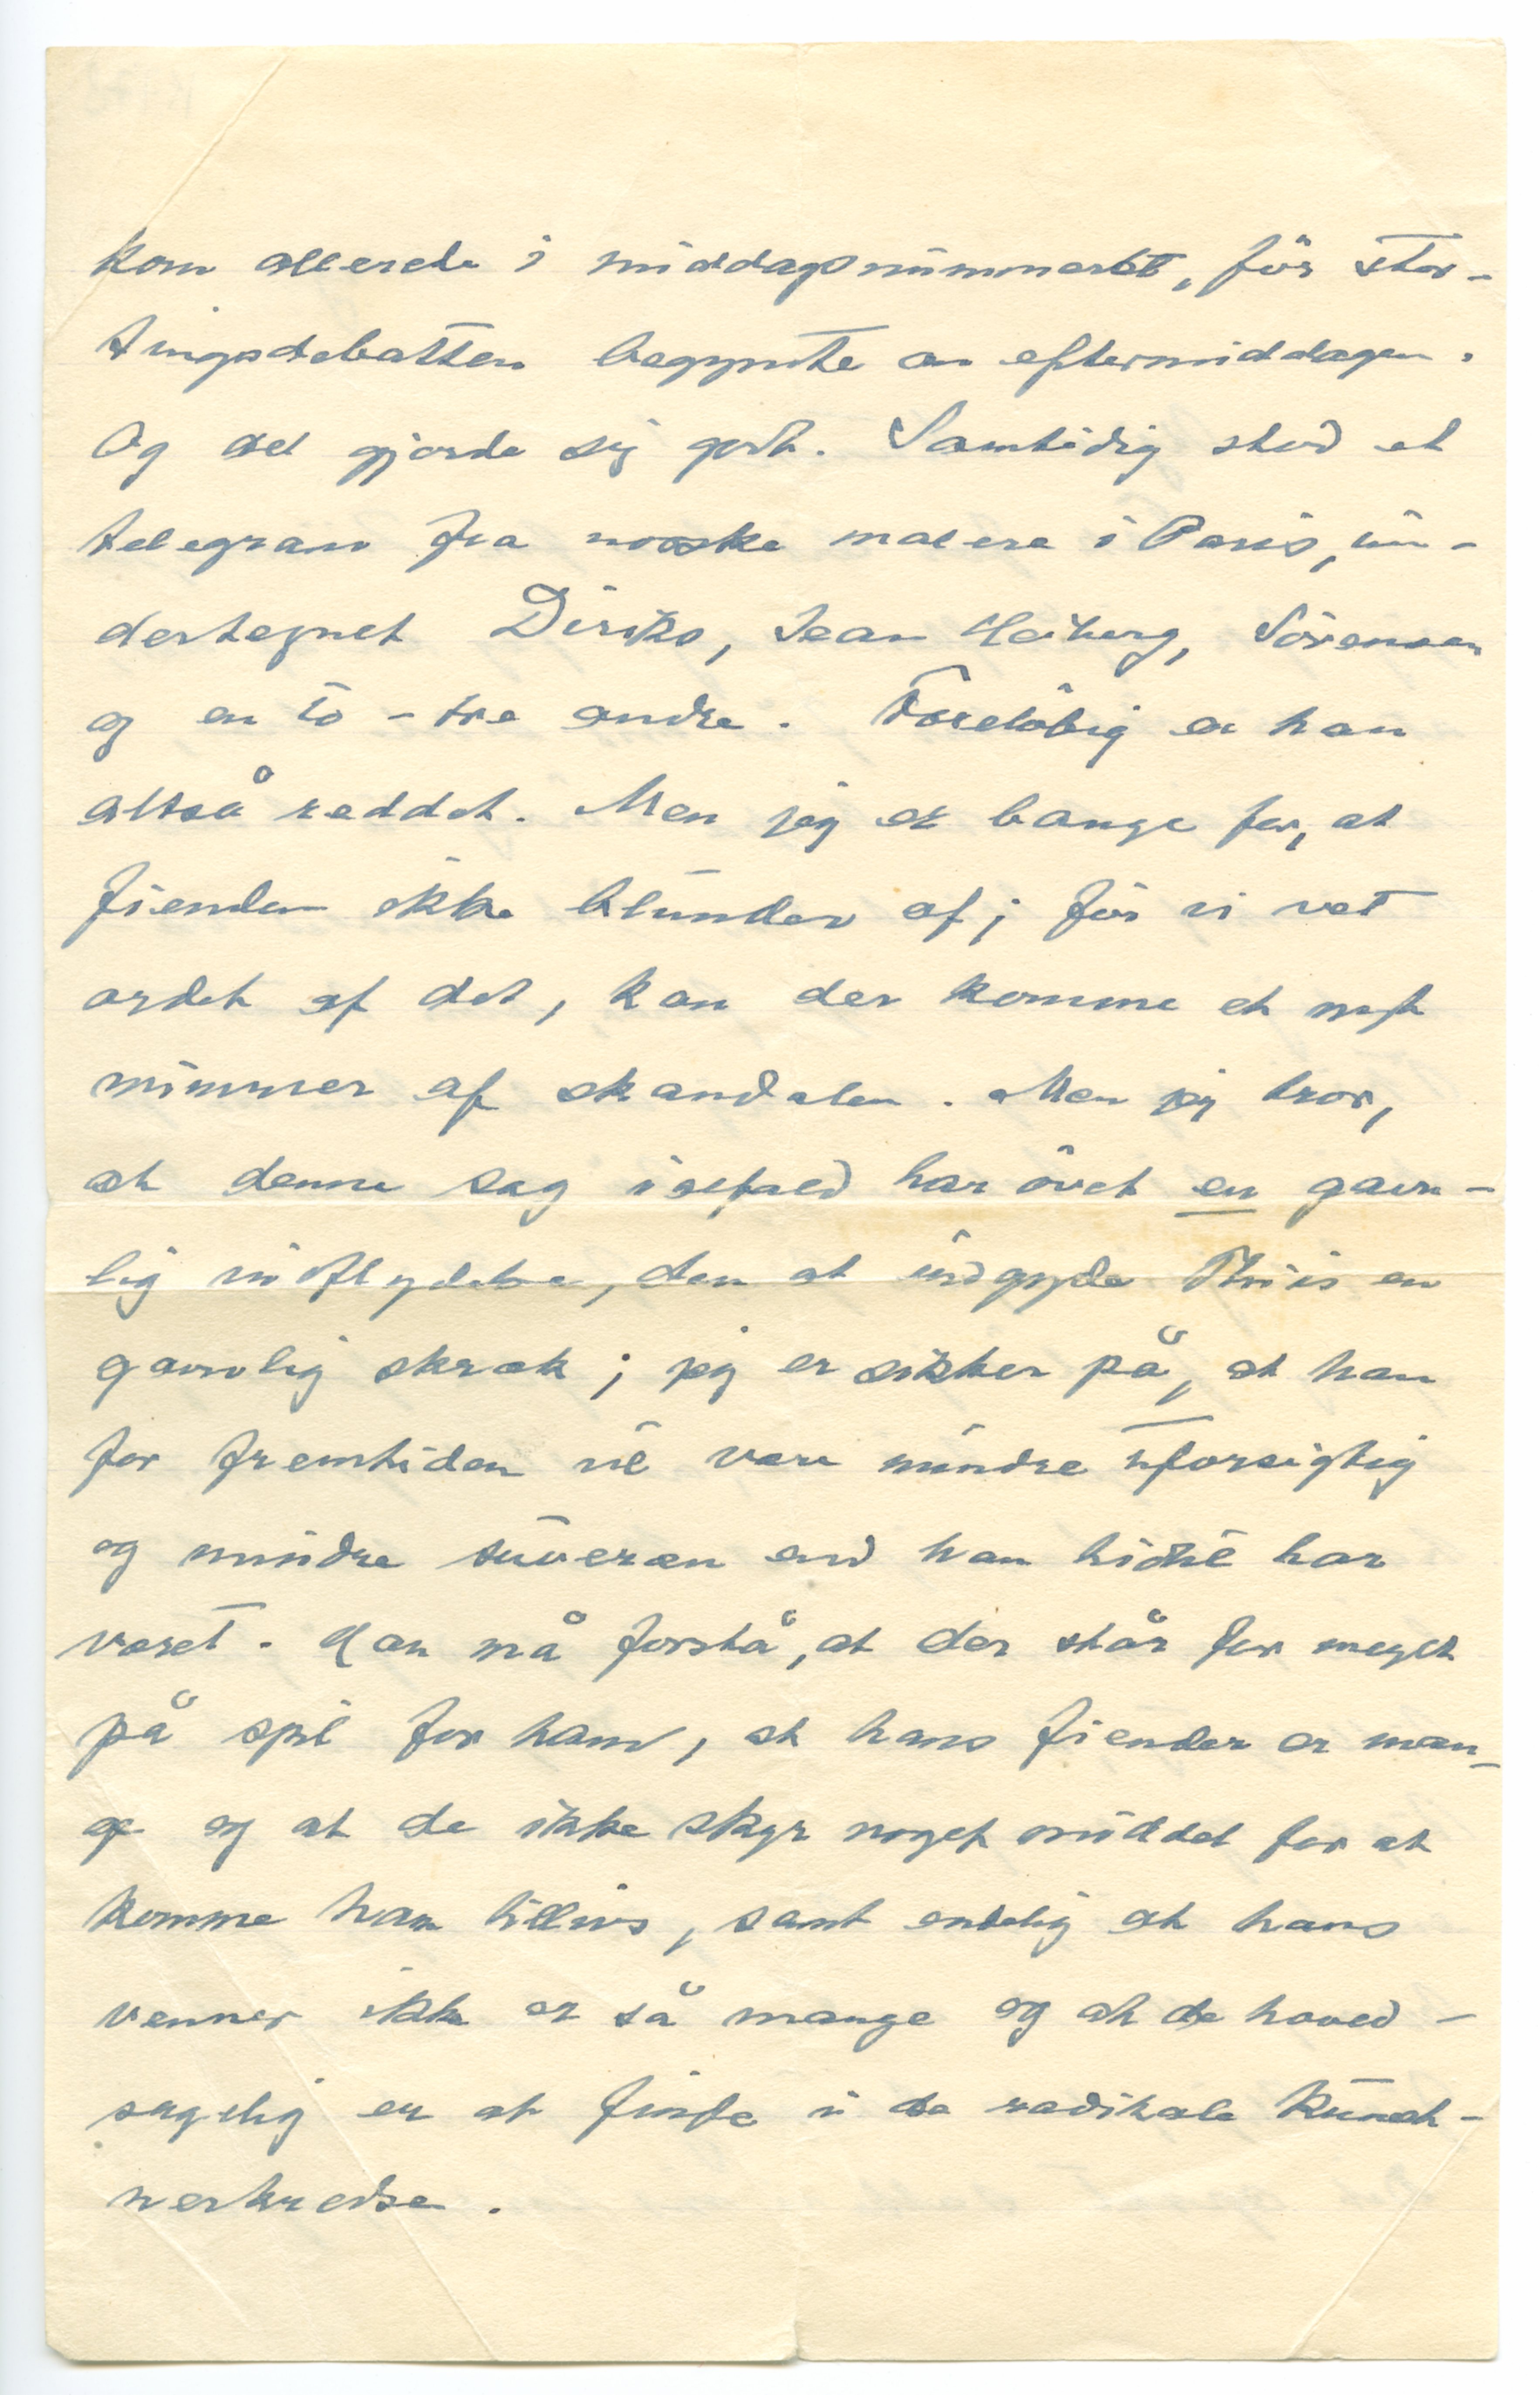 kom allerede i middagsnummeret, før stor-
tingsdebatten begynte om eftermiddagen.
Og det gjorde sig godt. Samtidig stod et
telegram fra norske malere i Paris, un-
dertegnet Diriks, Jean Heiberg, Sörensen
og en to-tre andre. Foreløbig er han
altså reddet. Men jeg er bange for, at
fienden ikke blunder af; før vi vet
ordet af det, kan der komme et nyt
nummer af skandalen. Men jeg tror,
at denne sag isefald har øvet en gavn-
lig indflydelse, den at indgyde Thiis en
gavnlig skræk; jeg er sikker på, at han
for fremtiden vil være mindre uforsigtig
og mindre suveræn end han hidtil har
været. Han må forstå, at der står for meget
på spil for ham, at hans fiender er man-
ge og at de ikke skyr noget middel for at
komme ham tillivs, samt endelig at hans
venner ikke er så mange og at de hoved-
sagelig er at finde i de radikale kunst-
nerkredse.